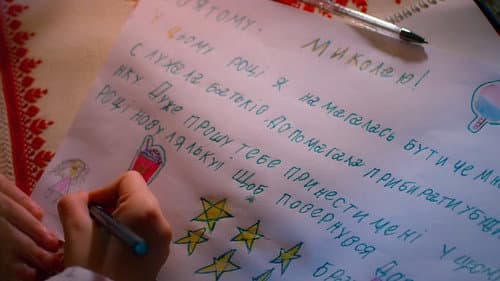 ЯТОМУ:
МИКОЛАЮ!
У ЦЬОМУ РОЦІ Я НАМАГАЛАСЬ БУТИ ЧЕМН
СЛУХАЛА БАТЬКІВ ДОПОМАГАЛА ПРИБИРАТИ У БУДИ
НКУ. ДУЖЕ ПРОШУ ТЕБЕ ПРИНЕСТИ МЕНІ У ЦЬОМУ
РОЦІ НОВУ ЛЯЛЬКУ! ЩОБ ПОВЕРНУВСЯ